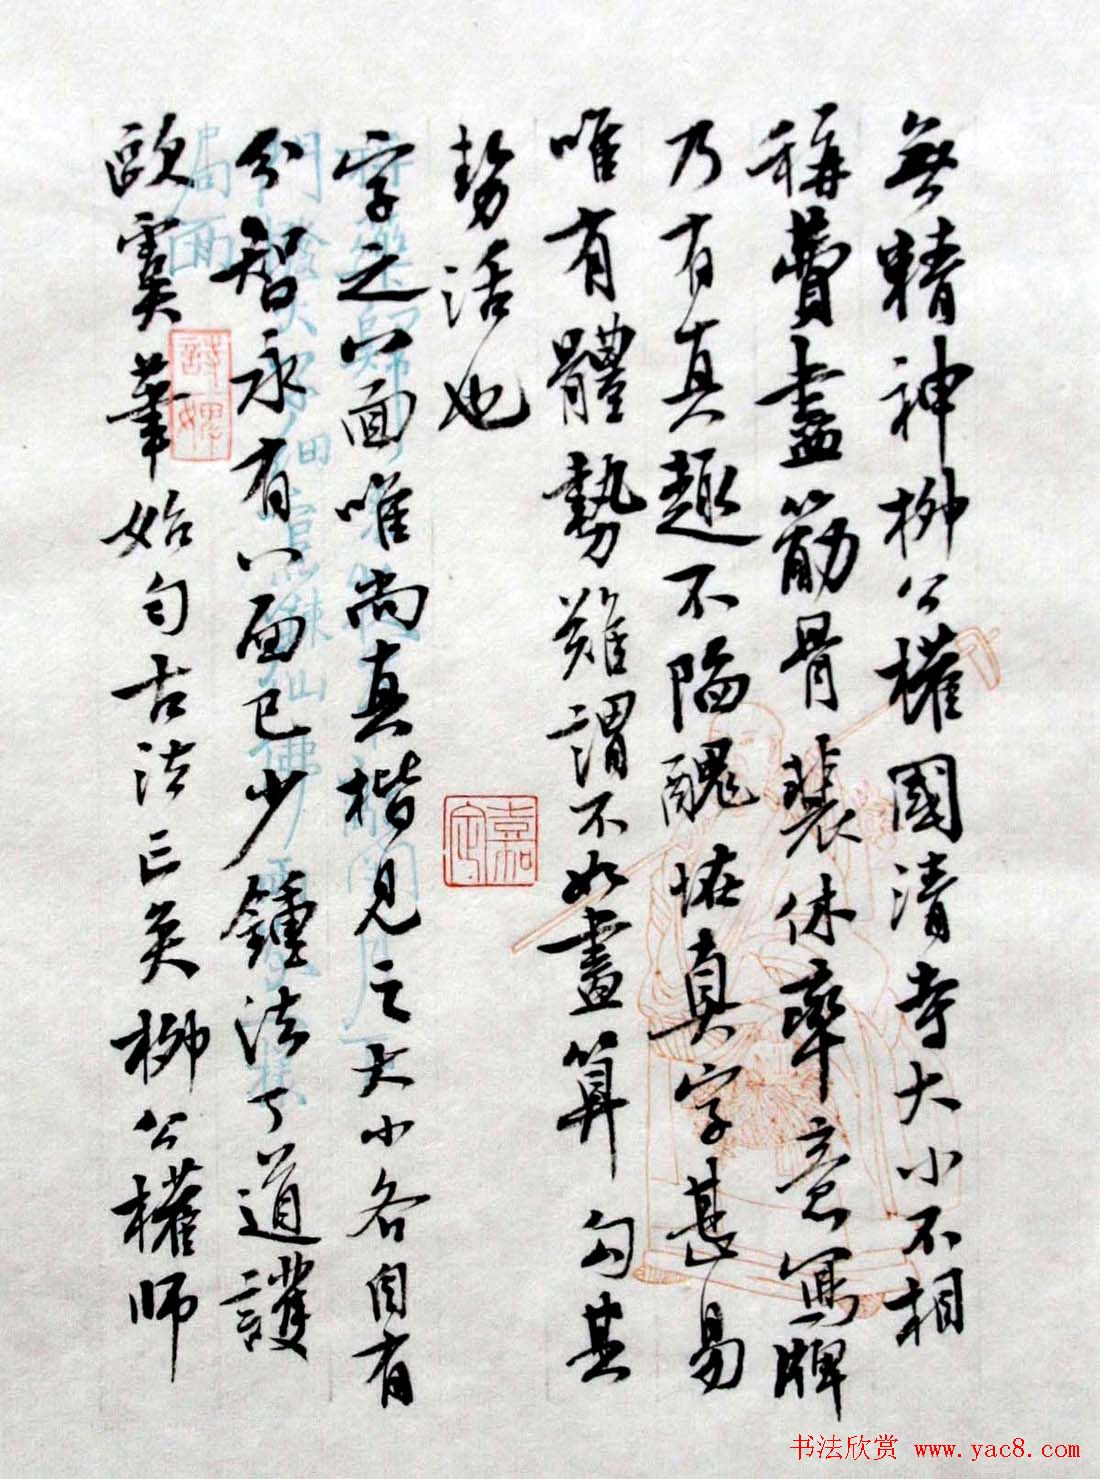 無精神柳公權國清寺大小不相
稱費盡筋骨裴休率意寫牌
乃有真趣不陷醜恠真字甚易
唯有體勢難謂不如畫算勾其
勢活也
字之八面唯尚真楷見之大小各自有
分智永有八面已少鍾法丁道護
歐虞筆始匀古法亡矣柳公權師
书法欣赏 www.yac8.com